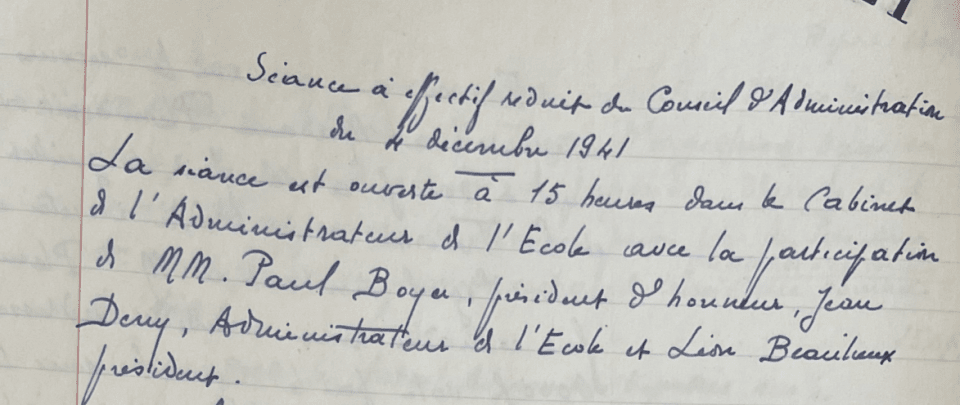 Séance à effectif réduit du Conseil d'Administration
du 4 décembre 1941
La séance est ouverte à 15 heures dans le Cabinet
de l'Administrateur de l'Ecole avec la participation
de MM. Paul Boyer, président d'honneur, Jean
Deny, Administrateur de l'Ecole et Léon Beaulieux
président.